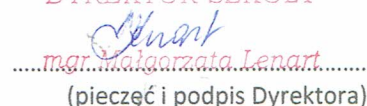 DYREKTOR SZKOŁY
Lenart
mgr Małgorzata Lenart
(pieczęć i podpis Dyrektora)